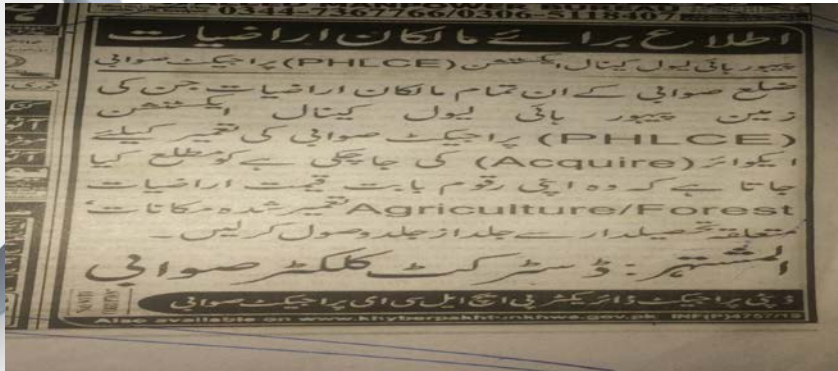 MANPOWER BUREAU
0344-7367766/0306-5118407
اطلاع برائے مالکان اراضیات
پیہور ہائی لیول کینال ایکسٹنشن (PHLCE) پراجیکٹ صوابی
ضلع صوابی کے ان تمام مالکان اراضیات جن کی
زمین پیہور ہائی لیول کینال ایکسٹنشن
(PHLCE) پراجیکٹ صوابی کی تعمیر کیلئے
ایکوائر (Acquire) کی جا چکی ہے کو مطلع کیا
جاتا ہے کہ وہ اپنی رقوم بابت قیمت اراضیات
Agriculture/Forest تعمیر شدہ مکانات،
متعلقہ تحصیلدار سے جلد از جلد وصول کرلیں۔
المشتہر: ڈسٹرکٹ کلکٹر صوابی
ڈپٹی پراجیکٹ ڈائریکٹر پی ایچ ایل سی ای پراجیکٹ صوابی
Also available on www.khyberpakhtunkhwa.gov.pk INF(P)4757/19